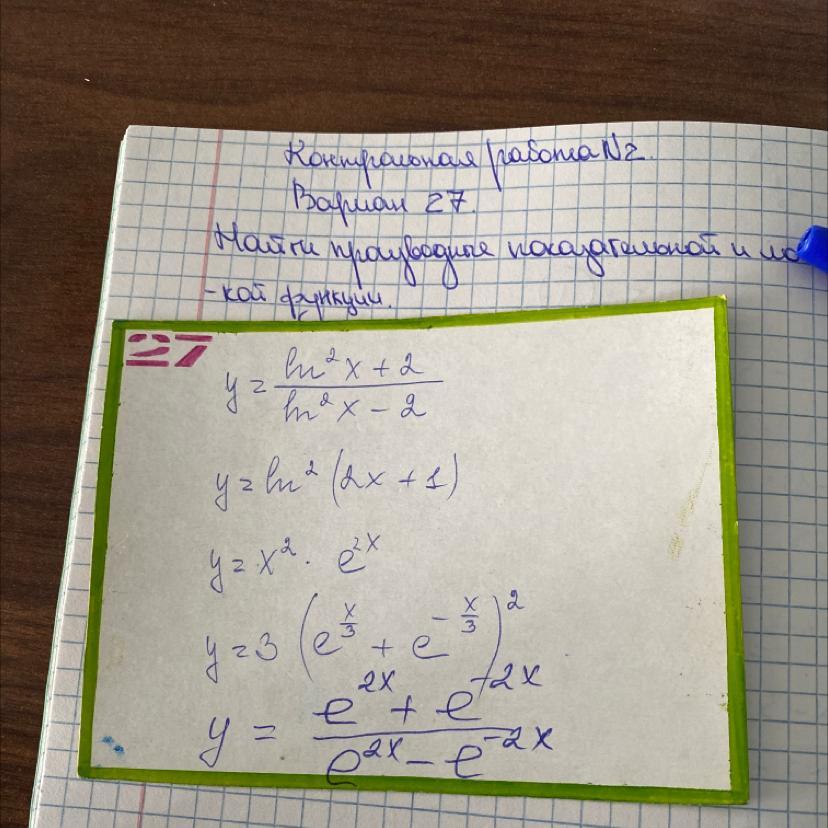 Контрольная работа N2.
Вариан 27.
Найти производные показательной и ло
-кой функции.
27
y = (ln² x + 2) / (ln² x - 2)
y = ln² (2x + 1)
y = x² · e^(2x)
y = 3 (e^(x/3) + e^(-x/3))²
y = (e^(2x) + e^(-2x)) / (e^(2x) - e^(-2x))